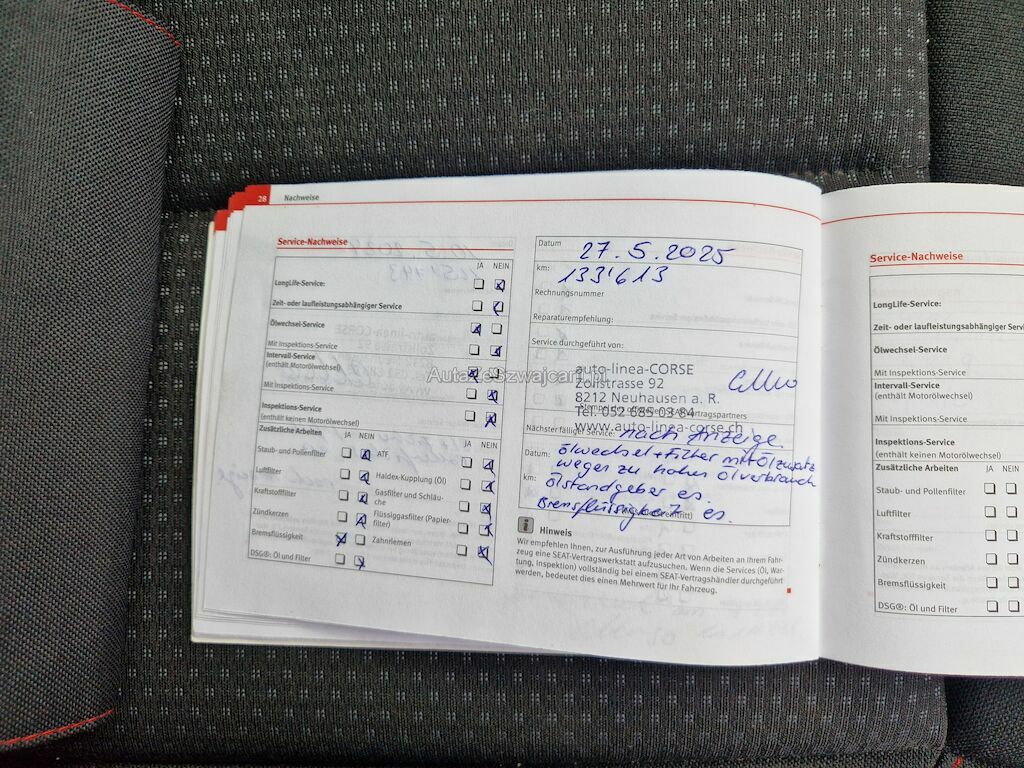 28 Nachweise
Service-Nachweise
JA NEIN
LongLife-Service:
Zeit- oder laufleistungsabhängiger Service
Ölwechsel-Service
Mit Inspektions-Service
Intervall-Service
(enthält Motorölwechsel)
Mit Inspektions-Service
Inspektions-Service
(enthält keinen Motorölwechsel)
Zusätzliche Arbeiten JA NEIN JA NEIN
Staub- und Pollenfilter ATF
Luftfilter Haldex-Kupplung (Öl)
Kraftstofffilter Gasfilter und Schläu-
che
Zündkerzen Flüssiggasfilter (Papier-
filter)
Bremsflüssigkeit Zahnriemen
DSG®: Öl und Filter
Datum 27.5.2025
km: 133'613
Rechnungsnummer
Reparaturempfehlung:
Service durchgeführt von:
auto-linea-CORSE
Zollstrasse 92
8212 Neuhausen a. R.
Tel. 052 685 03 84
Vertragspartners
www.auto-linea-corse.ch
Nächster fälliger Service: nach Anzeige
Datum: Ölwechsel + Filter mit Ölzusatz
wegen zu hohen Ölverbrauch
km: Ölstandgeber es.
Bremsflüssigkeit es.
i Hinweis
Wir empfehlen Ihnen, zur Ausführung jeder Art von Arbeiten an Ihrem Fahr-
zeug eine SEAT-Vertragswerkstatt aufzusuchen. Wenn die Services (Öl, War-
tung, Inspektion) vollständig bei einem SEAT-Vertragshändler durchgeführt
werden, bedeutet dies einen Mehrwert für Ihr Fahrzeug.
Service-Nachweise
LongLife-Service:
Zeit- oder laufleistungsabhängiger Servic
Ölwechsel-Service
Mit Inspektions-Service
Intervall-Service
(enthält Motorölwechsel)
Mit Inspektions-Service
Inspektions-Service
(enthält keinen Motorölwechsel)
Zusätzliche Arbeiten JA NEIN
Staub- und Pollenfilter
Luftfilter
Kraftstofffilter
Zündkerzen
Bremsflüssigkeit
DSG®: Öl und Filter